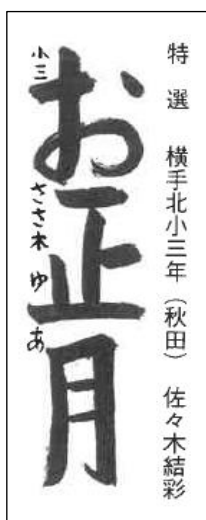 特選 横手北小三年（秋田） 佐々木結彩
お正月
小三 ささ木ゆあ